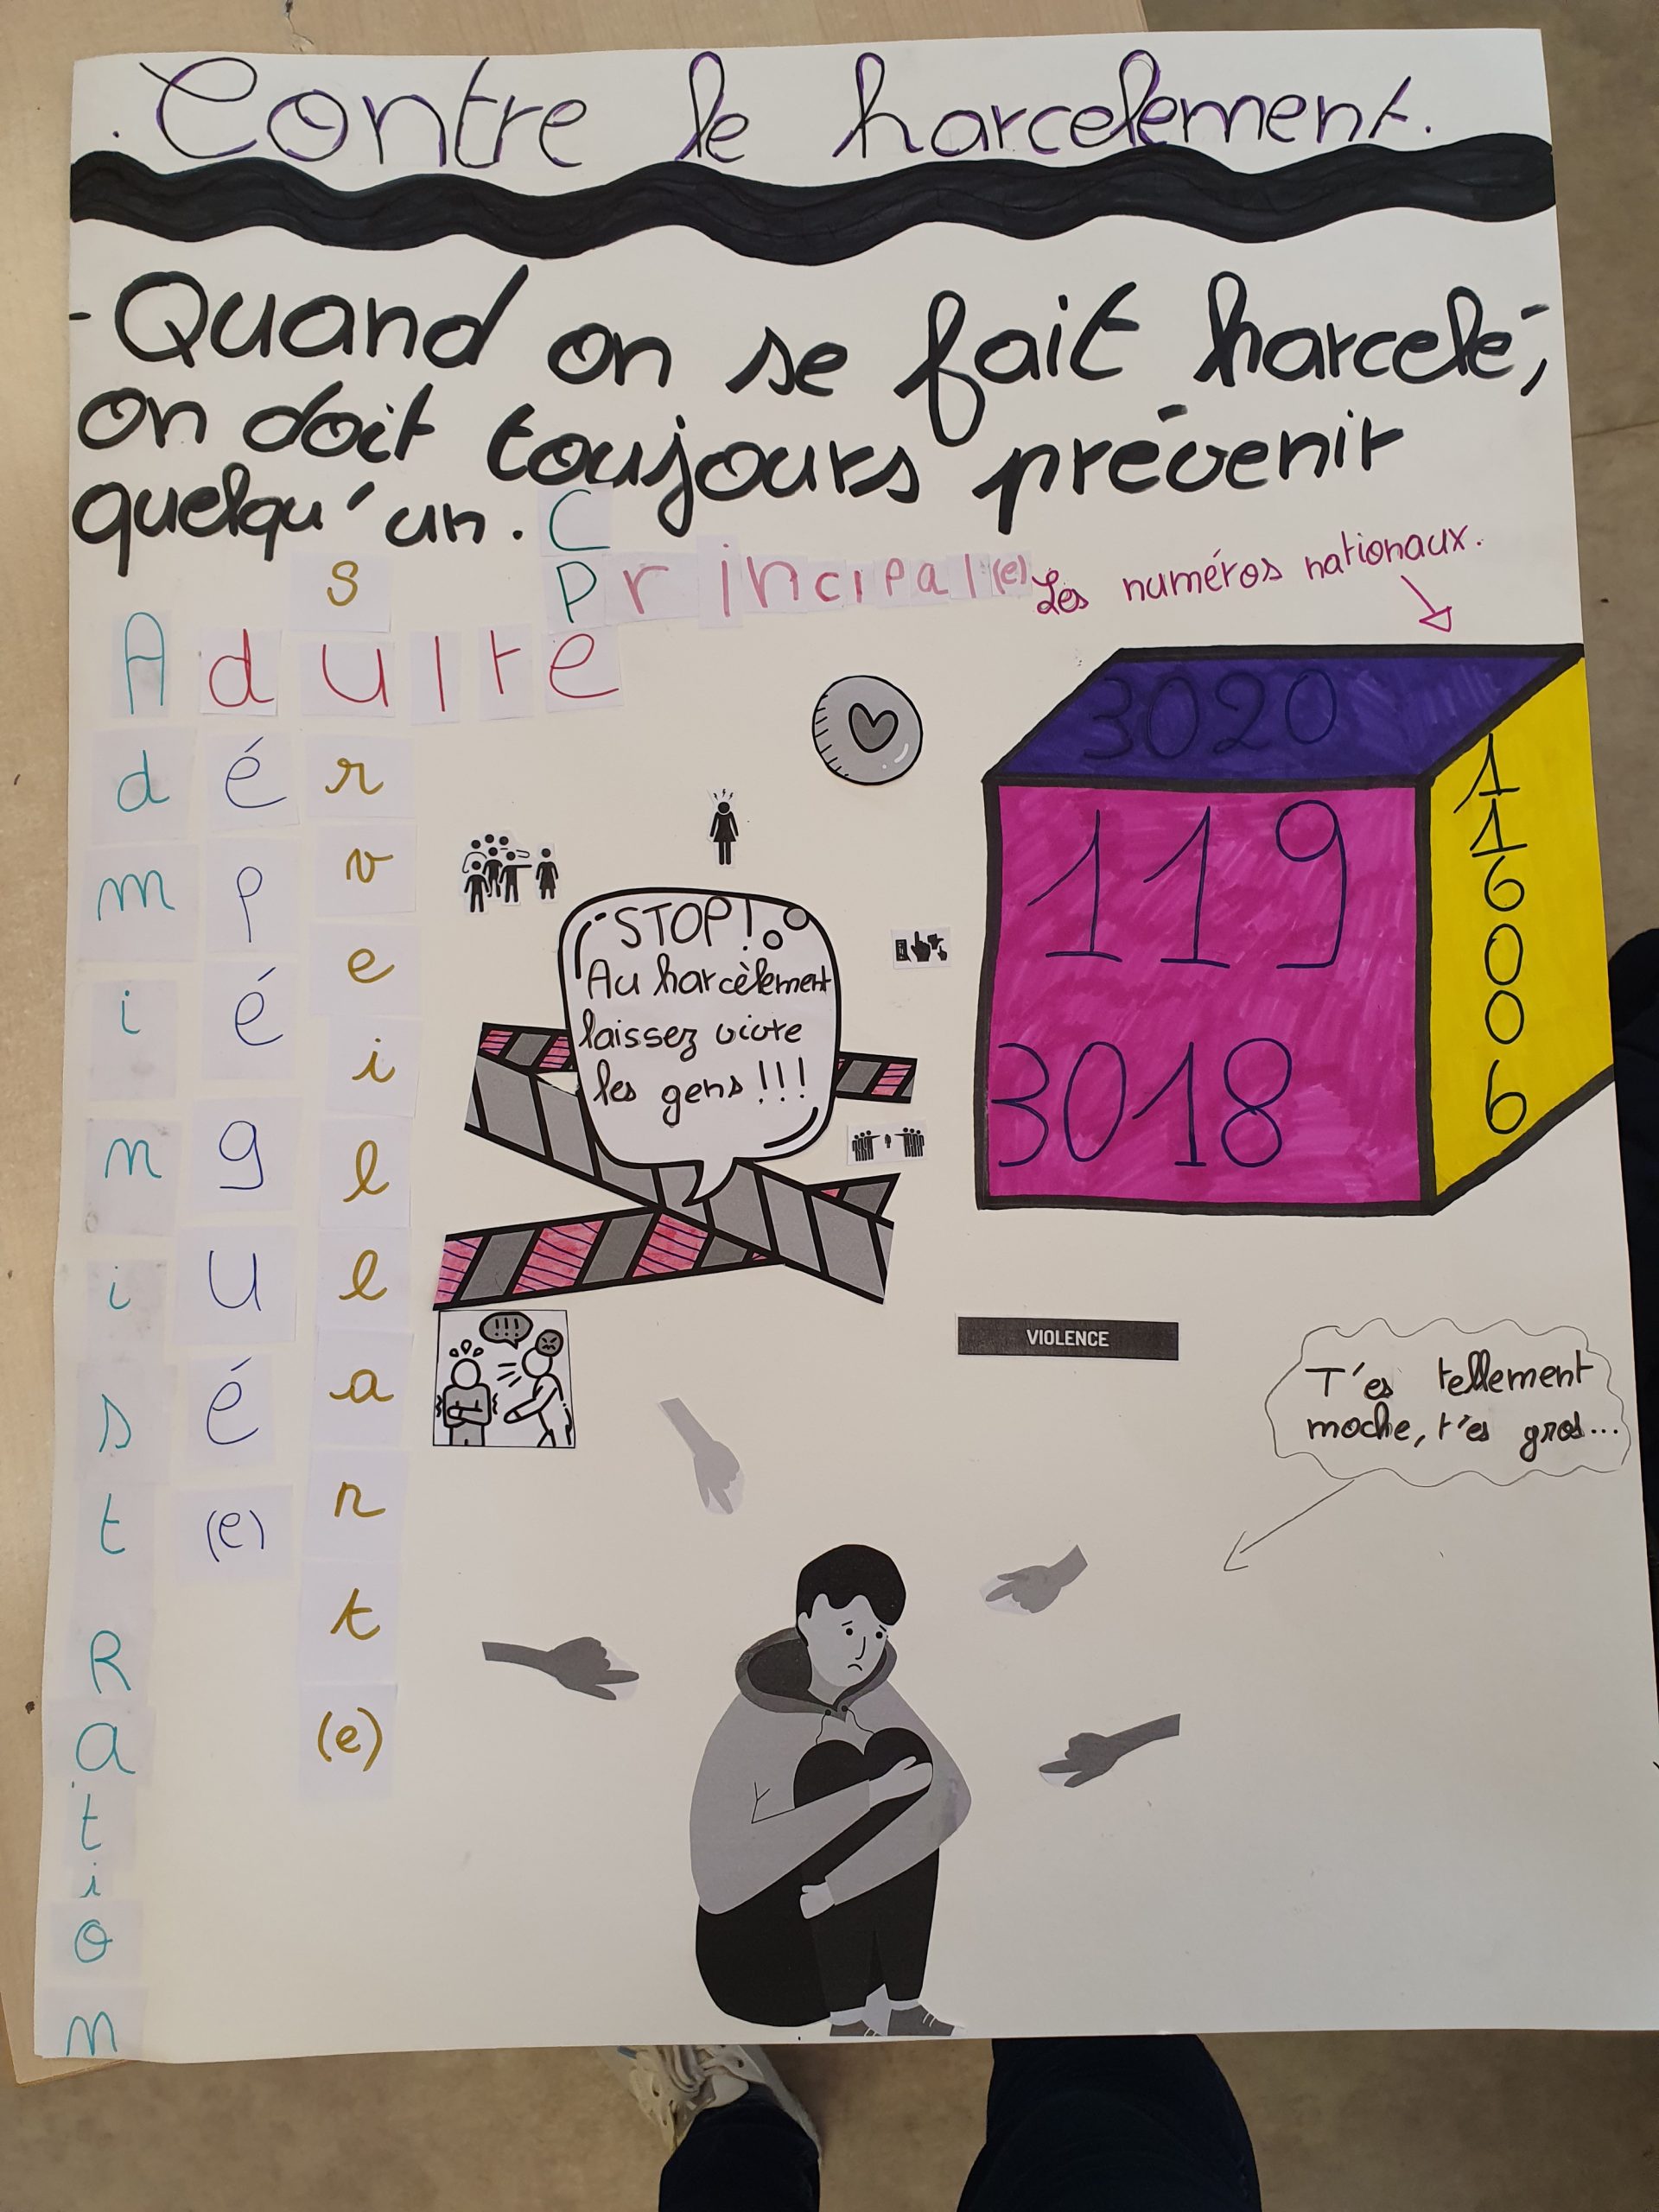 . Contre le harcelement.
- Quand on se fait harcelé,
on doit toujours prévenir
quelqu'un.
CPe
Principal(e)
Adulte
AdministRation
dépégué(e)
surveillant(e)
Les numéros nationaux.
3020
119
3018
116006
STOP!
Au harcèlement
laissez vivre
les gens!!!
!!!
VIOLENCE
T'es tellement
moche, t'es gros...